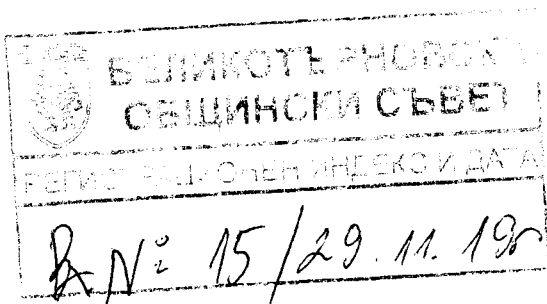 ВЕЛИКОТЪРНОВСКИ
ОБЩИНСКИ СЪВЕТ
РЕГИСТРАЦИОНЕН ИНДЕКС И ДАТА
Вх № 15/29.11.19г